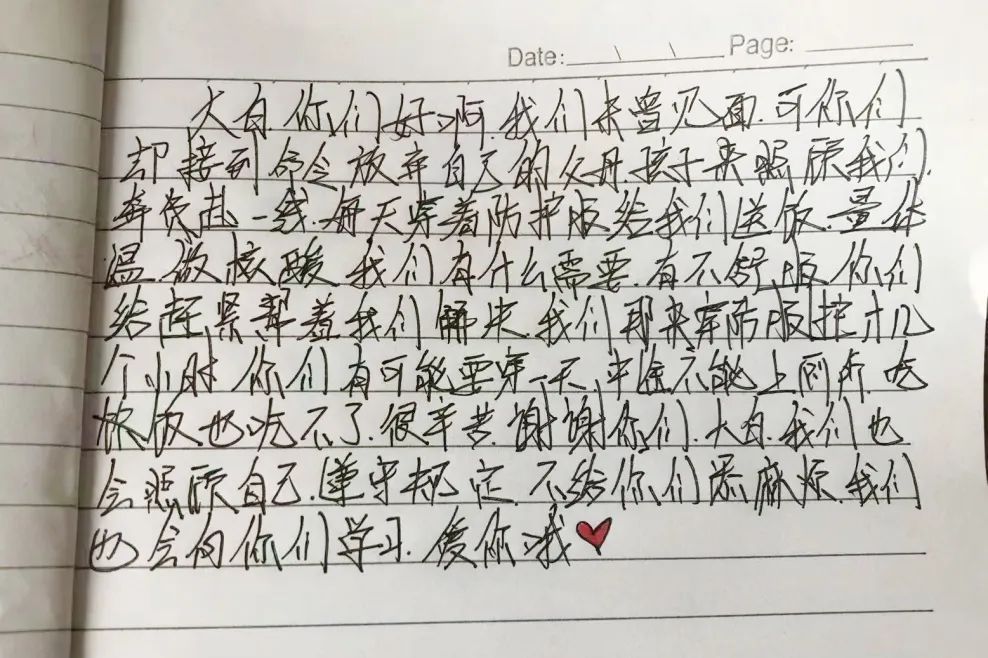 Date: \ \ Page:
大白.你们好啊.我们未曾见面.可你们
却接到命令放弃自己的父母.孩子来照顾我们.
奔赴一线.每天穿着防护服给我们送饭.量体
温.做核酸.我们有什么需要.有不舒服你们
给赶紧帮着我们解决.我们那来穿防服才几
个小时.你们有可能要穿一天.中途不能上厕所.吃
饭也吃不了.很辛苦.谢谢你们.大白.我们也
会照顾自己.遵守规定.不给你们添麻烦.我们
也会向你们学习.爱你哦